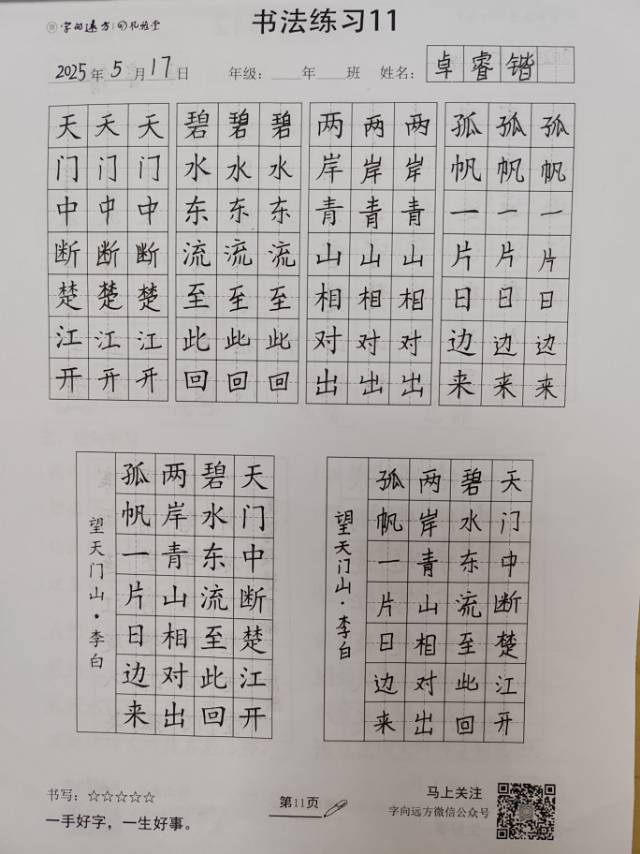 字向远方
书法练习11
2025年5月17日 年级：___年___班 姓名：卓睿锴
天天天 碧碧碧 两两两 孤孤孤
门门门 水水水 岸岸岸 帆帆帆
中中中 东东东 青青青 一一一
断断断 流流流 山山山 片片片
楚楚楚 至至至 相相相 日日日
江江江 此此此 对对对 边边边
开开开 回回回 出出出 来来来
天门中断楚江开
碧水东流至此回
两岸青山相对出
孤帆一片日边来
望天门山·李白
天门中断楚江开
碧水东流至此回
两岸青山相对出
孤帆一片日边来
望天门山·李白
书写：☆☆☆☆☆
一手好字，一生好事。
第11页
马上关注
字向远方微信公众号